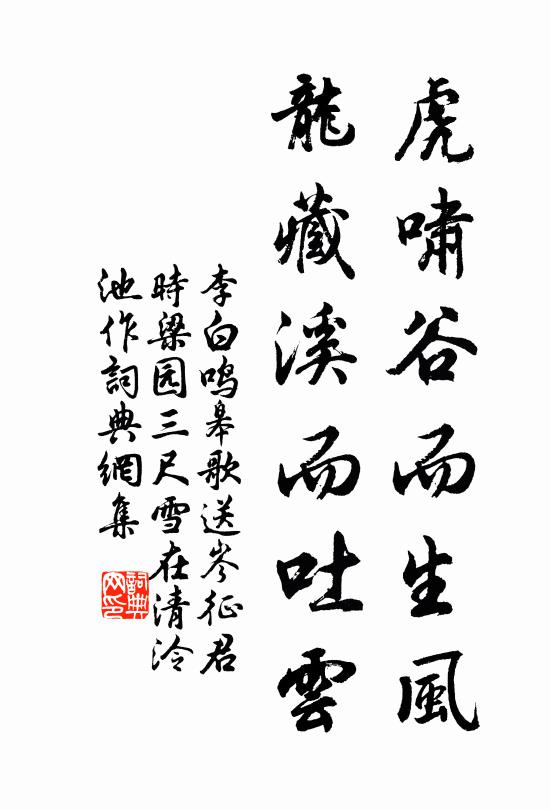 虎嘯谷而生風
龍藏溪而吐雲
李白鸣皋歌送岑征君
時梁园三尺雪在清泠
池作詞典網集
詞典网印